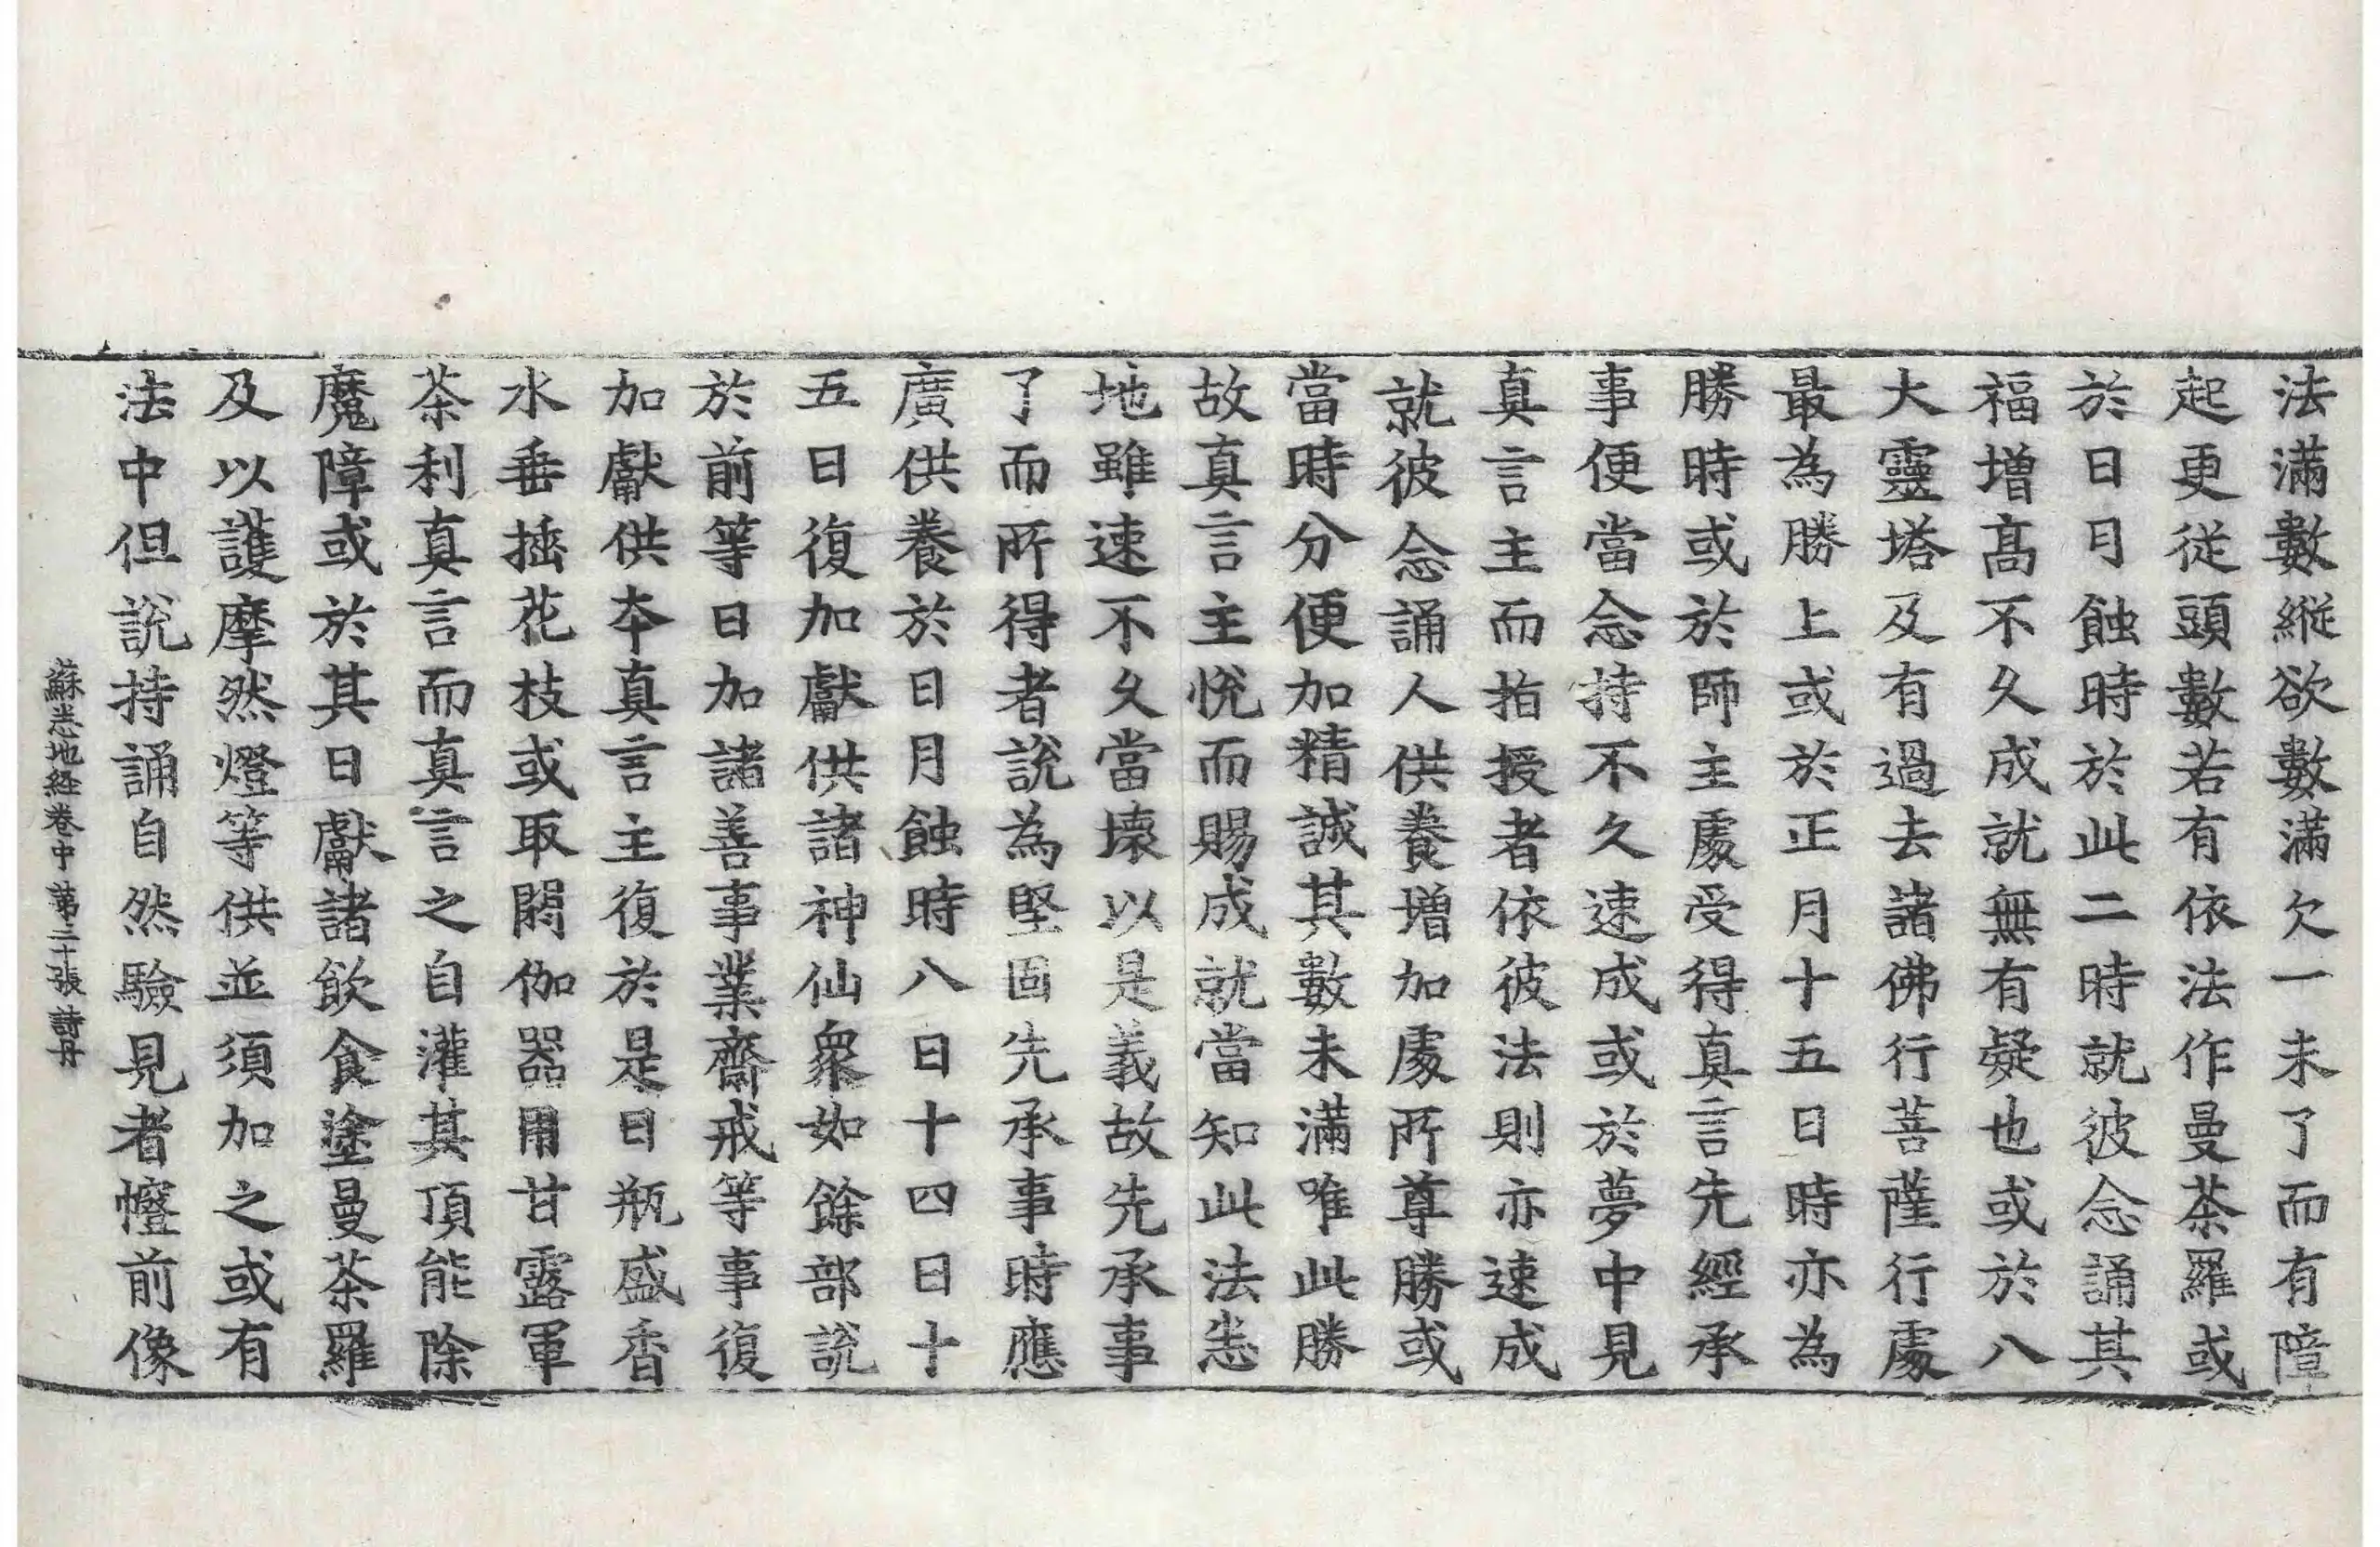 法滿數縱欲數滿欠一未了而有障
起更從頭數若有依法作曼荼羅或
於日月蝕時於此二時就彼念誦其
福增髙不久成就無有疑也或於八
大靈塔及有過去諸佛行菩薩行處
最為勝上或於正月十五日時亦為
勝時或於師主處受得真言先經承
事便當念持不久速成或於夢中見
真言主而拍授者依彼法則亦速成
就彼念誦人供養增加處所尊勝或
當時分便加精誠其數未滿唯此勝
故真言主悅而賜成就當知此法恙
地雖速不久當壞以是義故先承事
了而所得者說為堅固先承事時應
廣供養於日月蝕時八日十四日十
五日復加獻供諸神仙衆如餘部說
於前等日加諸善事業齋戒等事復
加獻供夲真言主復於是日瓶盛香
水垂插花枝或取閼伽器用甘露軍
荼利真言而真言之自灌其頂能除
魔障或於其日獻諸飲食塗曼荼羅
及以護摩然燈等供並須加之或有
法中但說持誦自然驗見者幰前像
蘇悉地経卷中 第二十張 詩丹